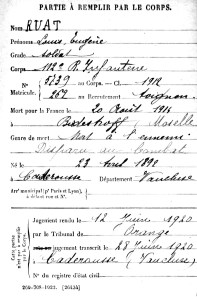 PARTIE À REMPLIR PAR LE CORPS.
Nom RUAT
Prénoms Louis Eugène
Grade soldat
Corps 112e R. d'Infanterie
N° 5739 au Corps. — Cl. 1912
Matricule. 267 au Recrutement Avignon
Mort pour la France le 20 Août 1914
à Moselle
Genre de mort Mort à l'ennemi
Disparu au combat
Né le 23 Avril 1892
à Caderousse Département Vaucluse
Arrt municipal (pr Paris et Lyon),
à défaut rue et N°.
Cette partie n'est pas à remplir par le Corps.
Jugement rendu le 12 Juin 1920
par le Tribunal de Orange
jugement transcrit le 28 Juin 1920
Caderousse (Vaucluse)
N° du registre d'état civil